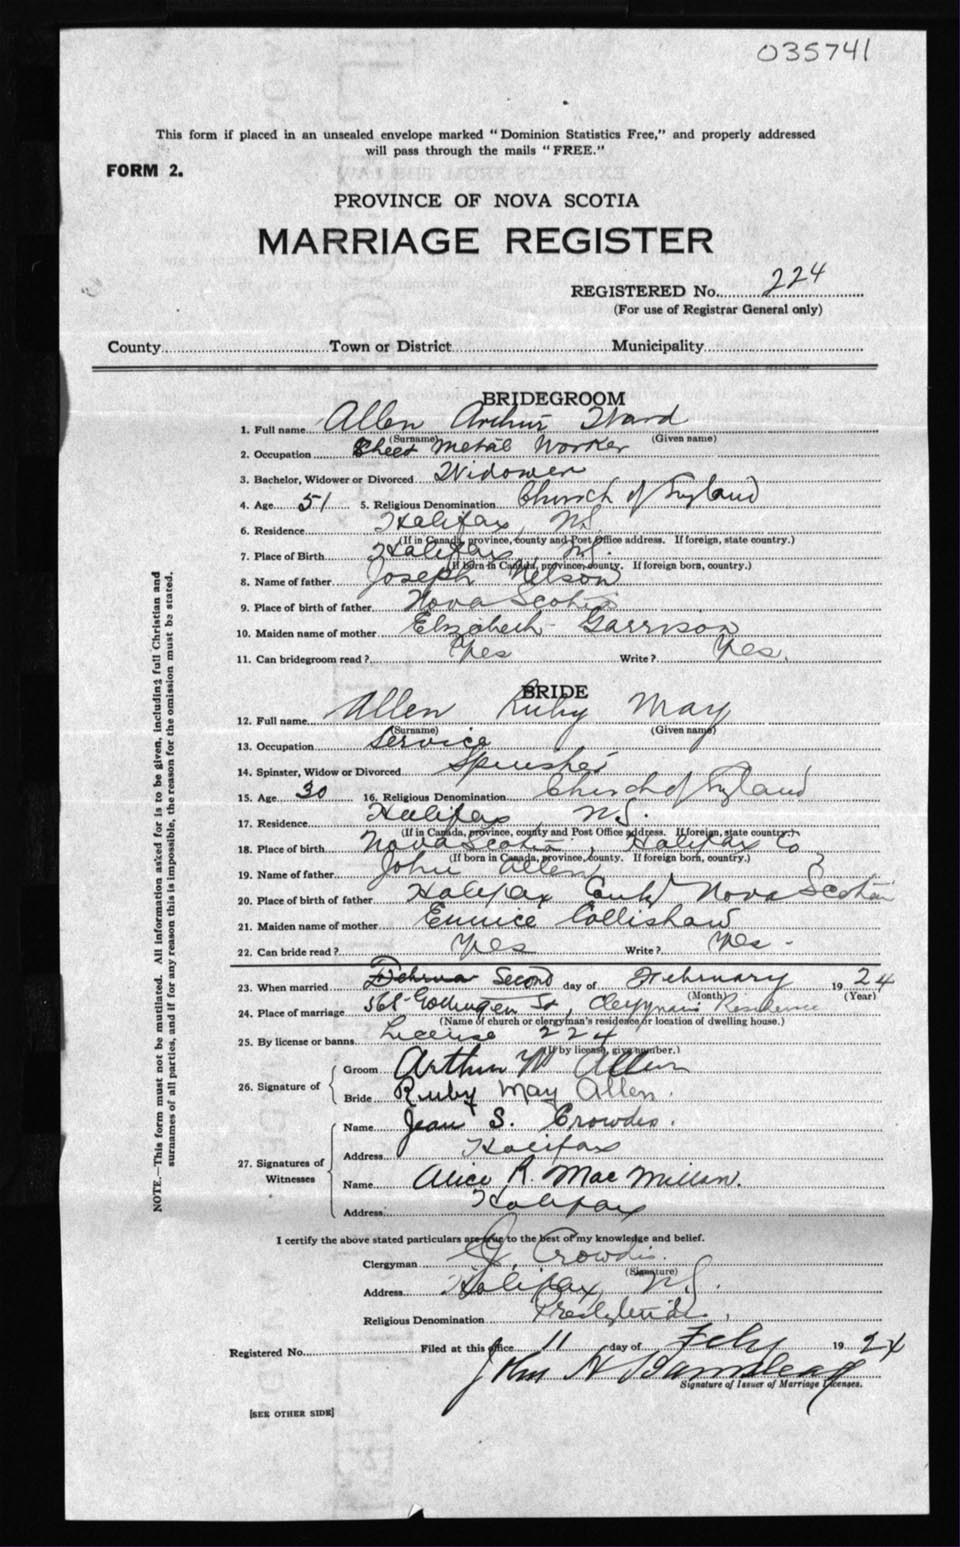 035741
This form if placed in an unsealed envelope marked "Dominion Statistics Free," and properly addressed
will pass through the mails "FREE."
FORM 2.
PROVINCE OF NOVA SCOTIA
MARRIAGE REGISTER
REGISTERED No. 224
(For use of Registrar General only)
County Town or District Municipality
BRIDEGROOM
1. Full name Allen Arthur Ward
(Surname) (Given name)
2. Occupation Sheet Metal Worker
3. Bachelor, Widower or Divorced Widower
4. Age 51 5. Religious Denomination Church of England
6. Residence Halifax, N.S.
(If in Canada, province, county and Post Office address. If foreign, state country.)
7. Place of Birth Halifax, N.S.
(If born in Canada, province, county. If foreign born, country.)
8. Name of father Joseph Nelson
9. Place of birth of father Nova Scotia
10. Maiden name of mother Elizabeth Garrison
11. Can bridegroom read? Yes Write? Yes.
BRIDE
12. Full name Allen Ruby May
(Surname) (Given name)
13. Occupation Service
14. Spinster, Widow or Divorced Spinster
15. Age 30 16. Religious Denomination Church of England
17. Residence Halifax, N.S.
(If in Canada, province, county and Post Office address. If foreign, state country.)
18. Place of birth Nova Scotia, Halifax Co
(If born in Canada, province, county. If foreign born, country.)
19. Name of father John Allen
20. Place of birth of father Halifax Nova Scotia
21. Maiden name of mother Eunice Collishaw
22. Can bride read? Yes Write? Yes -
23. When married Second day of February 1924
(Month) (Year)
24. Place of marriage Gottingen St, Clergyman's Residence
(Name of church or clergyman's residence or location of dwelling house.)
25. By license or banns License 224
(If by license, give number.)
26. Signature of
Groom Arthur W Allen
Bride Ruby May Allen.
27. Signatures of Witnesses
Name Jean S. Crowdis.
Address Halifax
Name Alice R. MacMillan.
Address Halifax
I certify the above stated particulars are true to the best of my knowledge and belief.
Clergyman J. Crowdis.
(Signature)
Address Halifax, N.S.
Religious Denomination Presbyterian.
Registered No. Filed at this office 11 day of Feby 1924
John H
Signature of Issuer of Marriage Licenses.
[SEE OTHER SIDE]
NOTE.—This form must not be mutilated. All information asked for is to be given, including full Christian and
surnames of all parties, and if for any reason this is impossible, the reason for the omission must be stated.